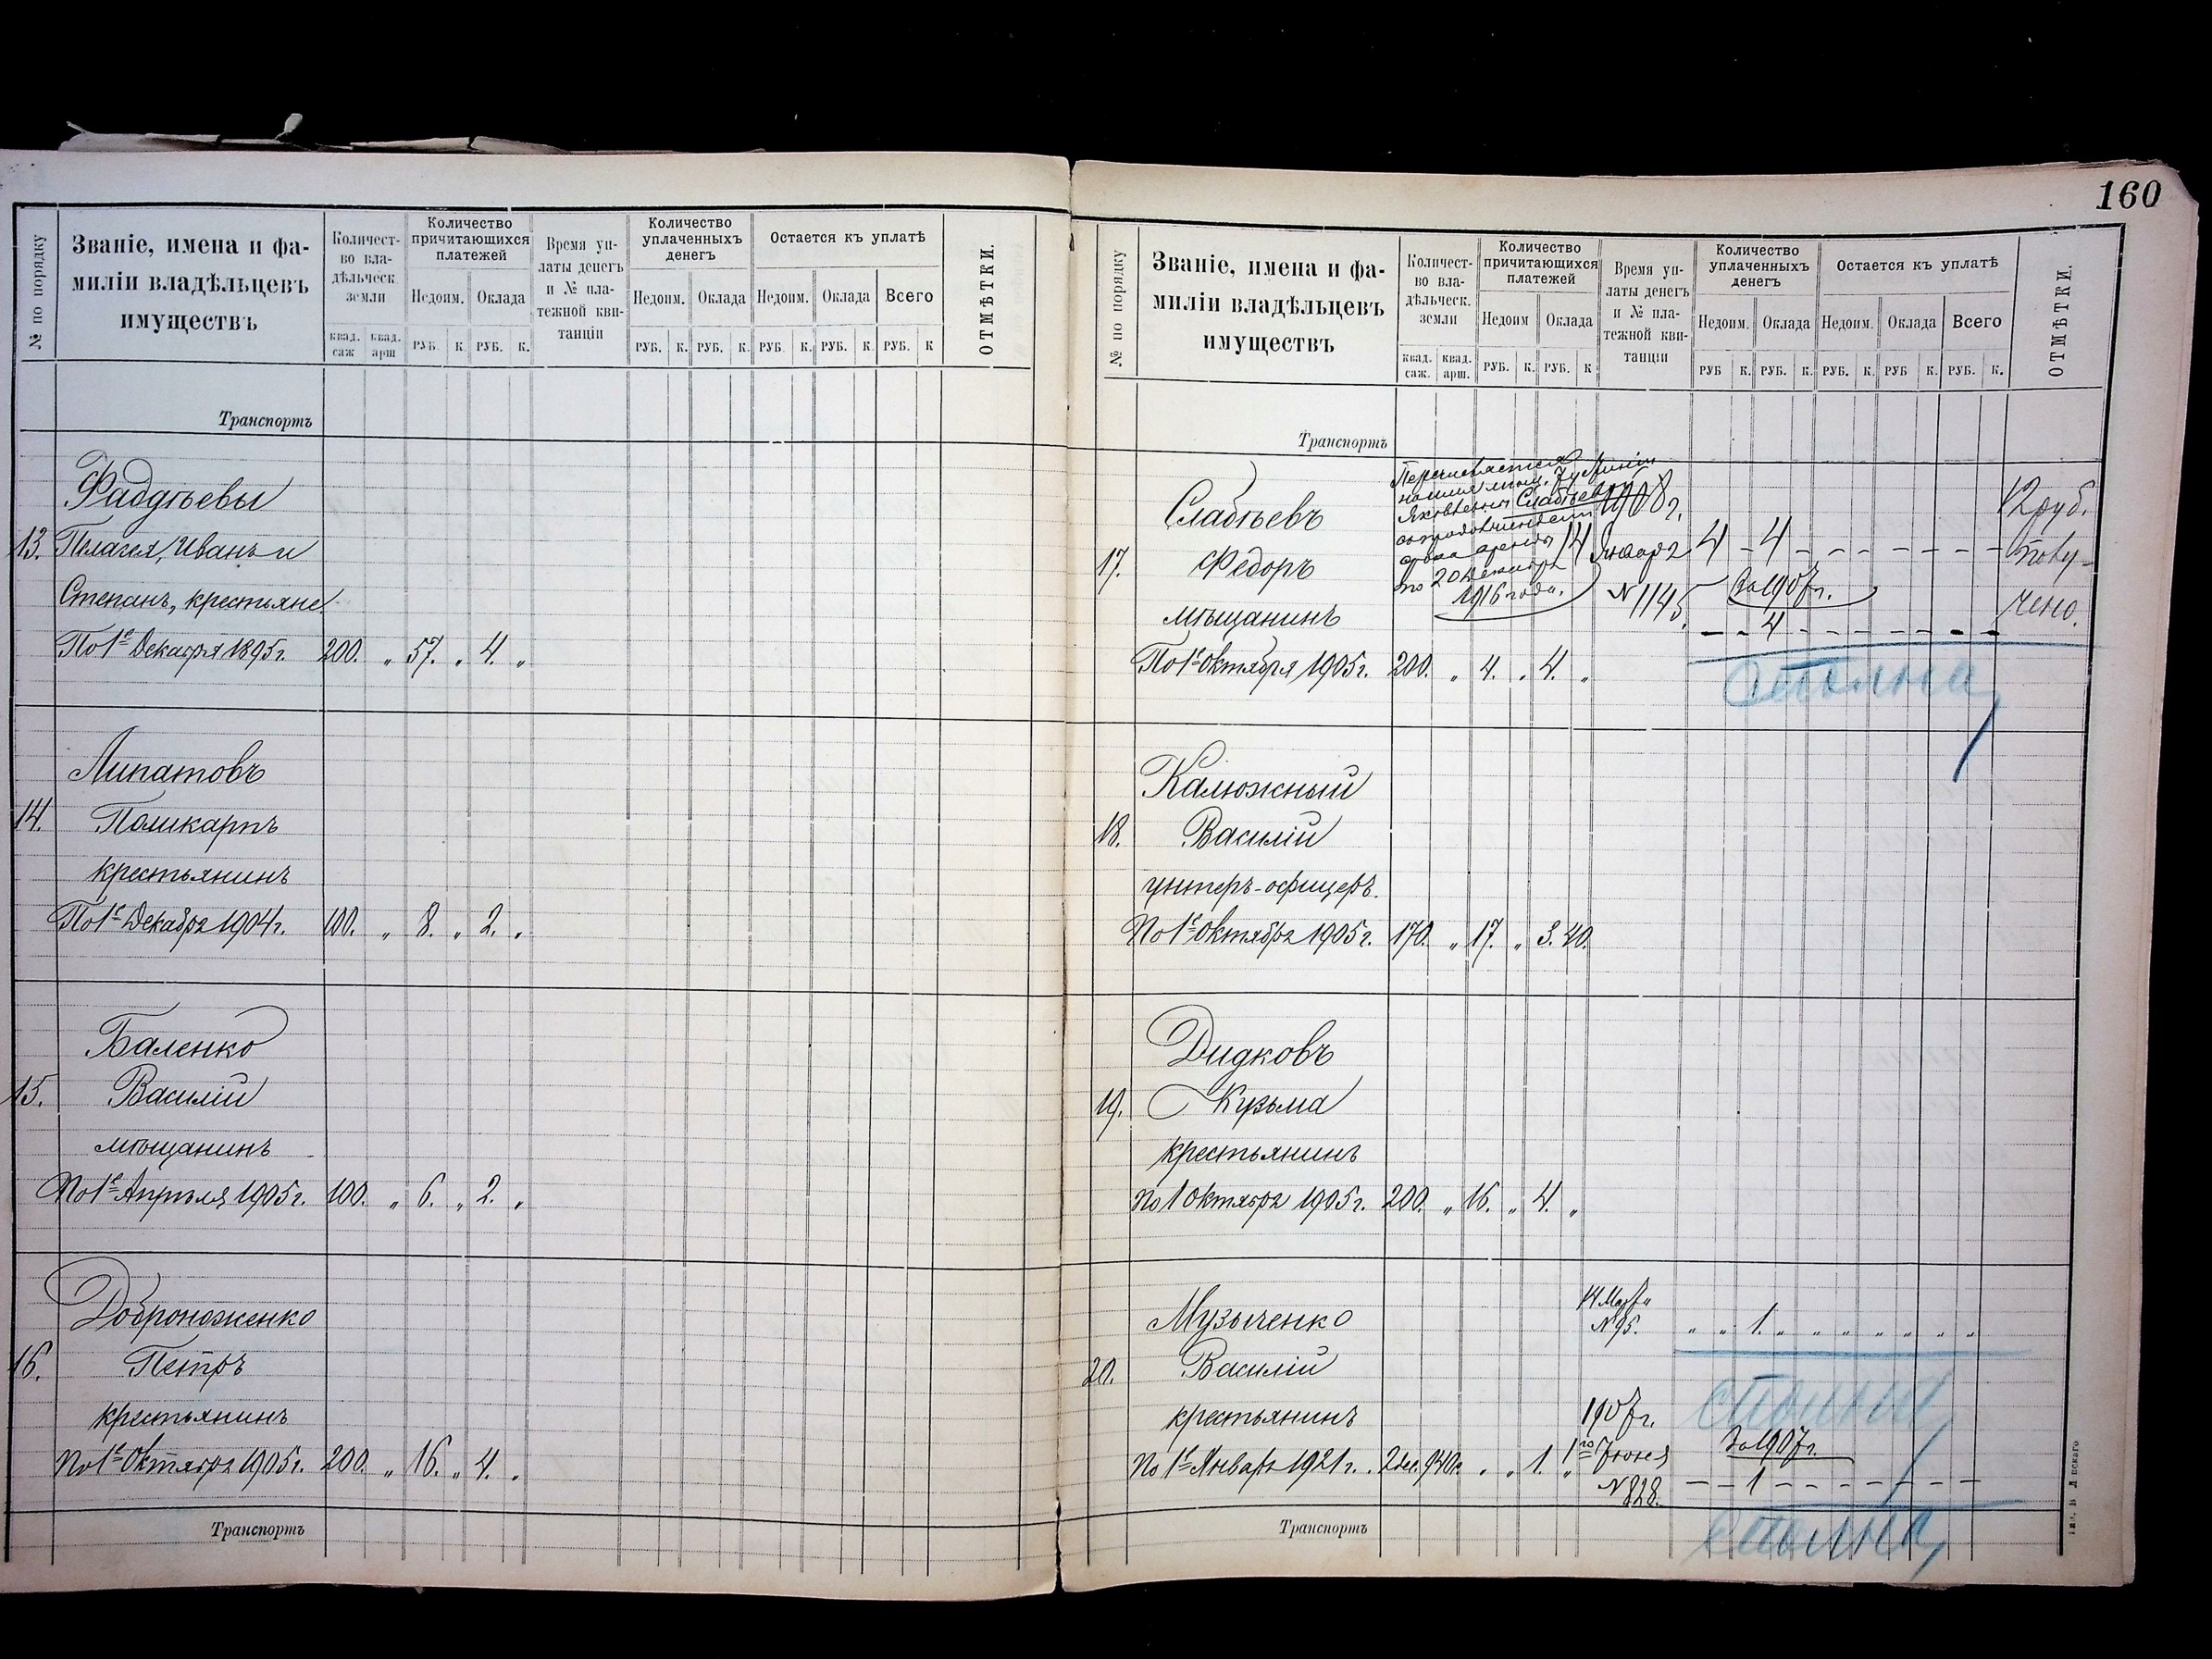 160
№ по порядку
Званіе, имена и фа-
миліи владѣльцевъ
имуществъ
Количест-
во вла-
дѣльческ.
земли
квад. саж
квад. арш
Количество
причитающихся
платежей
Недоим.
Оклада
РУБ.
К.
РУБ.
К.
Время уп-
латы денегъ
и № пла-
тежной кви-
танціи
Количество
уплаченныхъ
денегъ
Недоим.
Оклада
РУБ.
К.
РУБ.
К.
Остается къ уплатѣ
Недоим.
Оклада
Всего
РУБ.
К.
РУБ.
К.
РУБ.
К
ОТМѢТКИ.
Транспортъ
Фадѣевы
13. Пелагея, Иванъ и
Степанъ, крестьяне.
По 1е Декабря 1895 г. 200. „ 57. „ 4. „
Липатовъ
14. Поликарпъ
крестьянинъ
По 1е Декабря 1904 г. 100. „ 8. „ 2. „
Баленко
15. Василій
мѣщанинъ
По 1е Апрѣля 1905 г. 100. „ 6. „ 2. „
Доброноженко
16. Петръ
крестьянинъ
По 1е Октября 1905 г. 200. „ 16. „ 4. „
Транспортъ
№ по порядку
Званіе, имена и фа-
миліи владѣльцевъ
имуществъ
Количест-
во вла-
дѣльческ.
земли
квад. саж.
квад. арш.
Количество
причитающихся
платежей
Недоим
Оклада
РУБ.
К.
РУБ.
К
Время уп-
латы денегъ
и № пла-
тежной кви-
танціи
Количество
уплаченныхъ
денегъ
Недоим.
Оклада
РУБ
К.
РУБ.
К.
Остается къ уплатѣ
Недоим.
Оклада
Всего
РУБ.
К.
РУБ
К.
РУБ.
К.
ОТМѢТКИ.
Транспортъ
Перечисляется
Яковлевны Слабѣевой
срока аренды
по 20 Декабря
1916 года.
Слабѣевъ 1908 г. 12 руб.
17. Федоръ 14 Января 4 - 4 - - - - - - полу-
мѣщанинъ № 1145. За 1907 г. чено.
- - 4 - - - - - -
По 1е Октября 1905 г. 200. „ 4. „ 4. „
Калюжный
18. Василій
унтеръ-офицеръ.
По 1е Октября 1905 г. 170. „ 17. „ 3. 40.
Дидковъ
19. Кузьма
крестьянинъ
По 1 Октября 1905 г. 200. „ 16. „ 4. „
14 Марта
Музыченко № 95. „ „ 1. „ „ „ „ „ „ „
20. Василій
сполна
крестьянинъ 1907 г. За 1907 г.
По 1е Января 1921 г. 2 дес. 940 с. „ „ 1. „ 1го Іюня
№ 828. - - 1 - - - - - -
сполна
Транспортъ